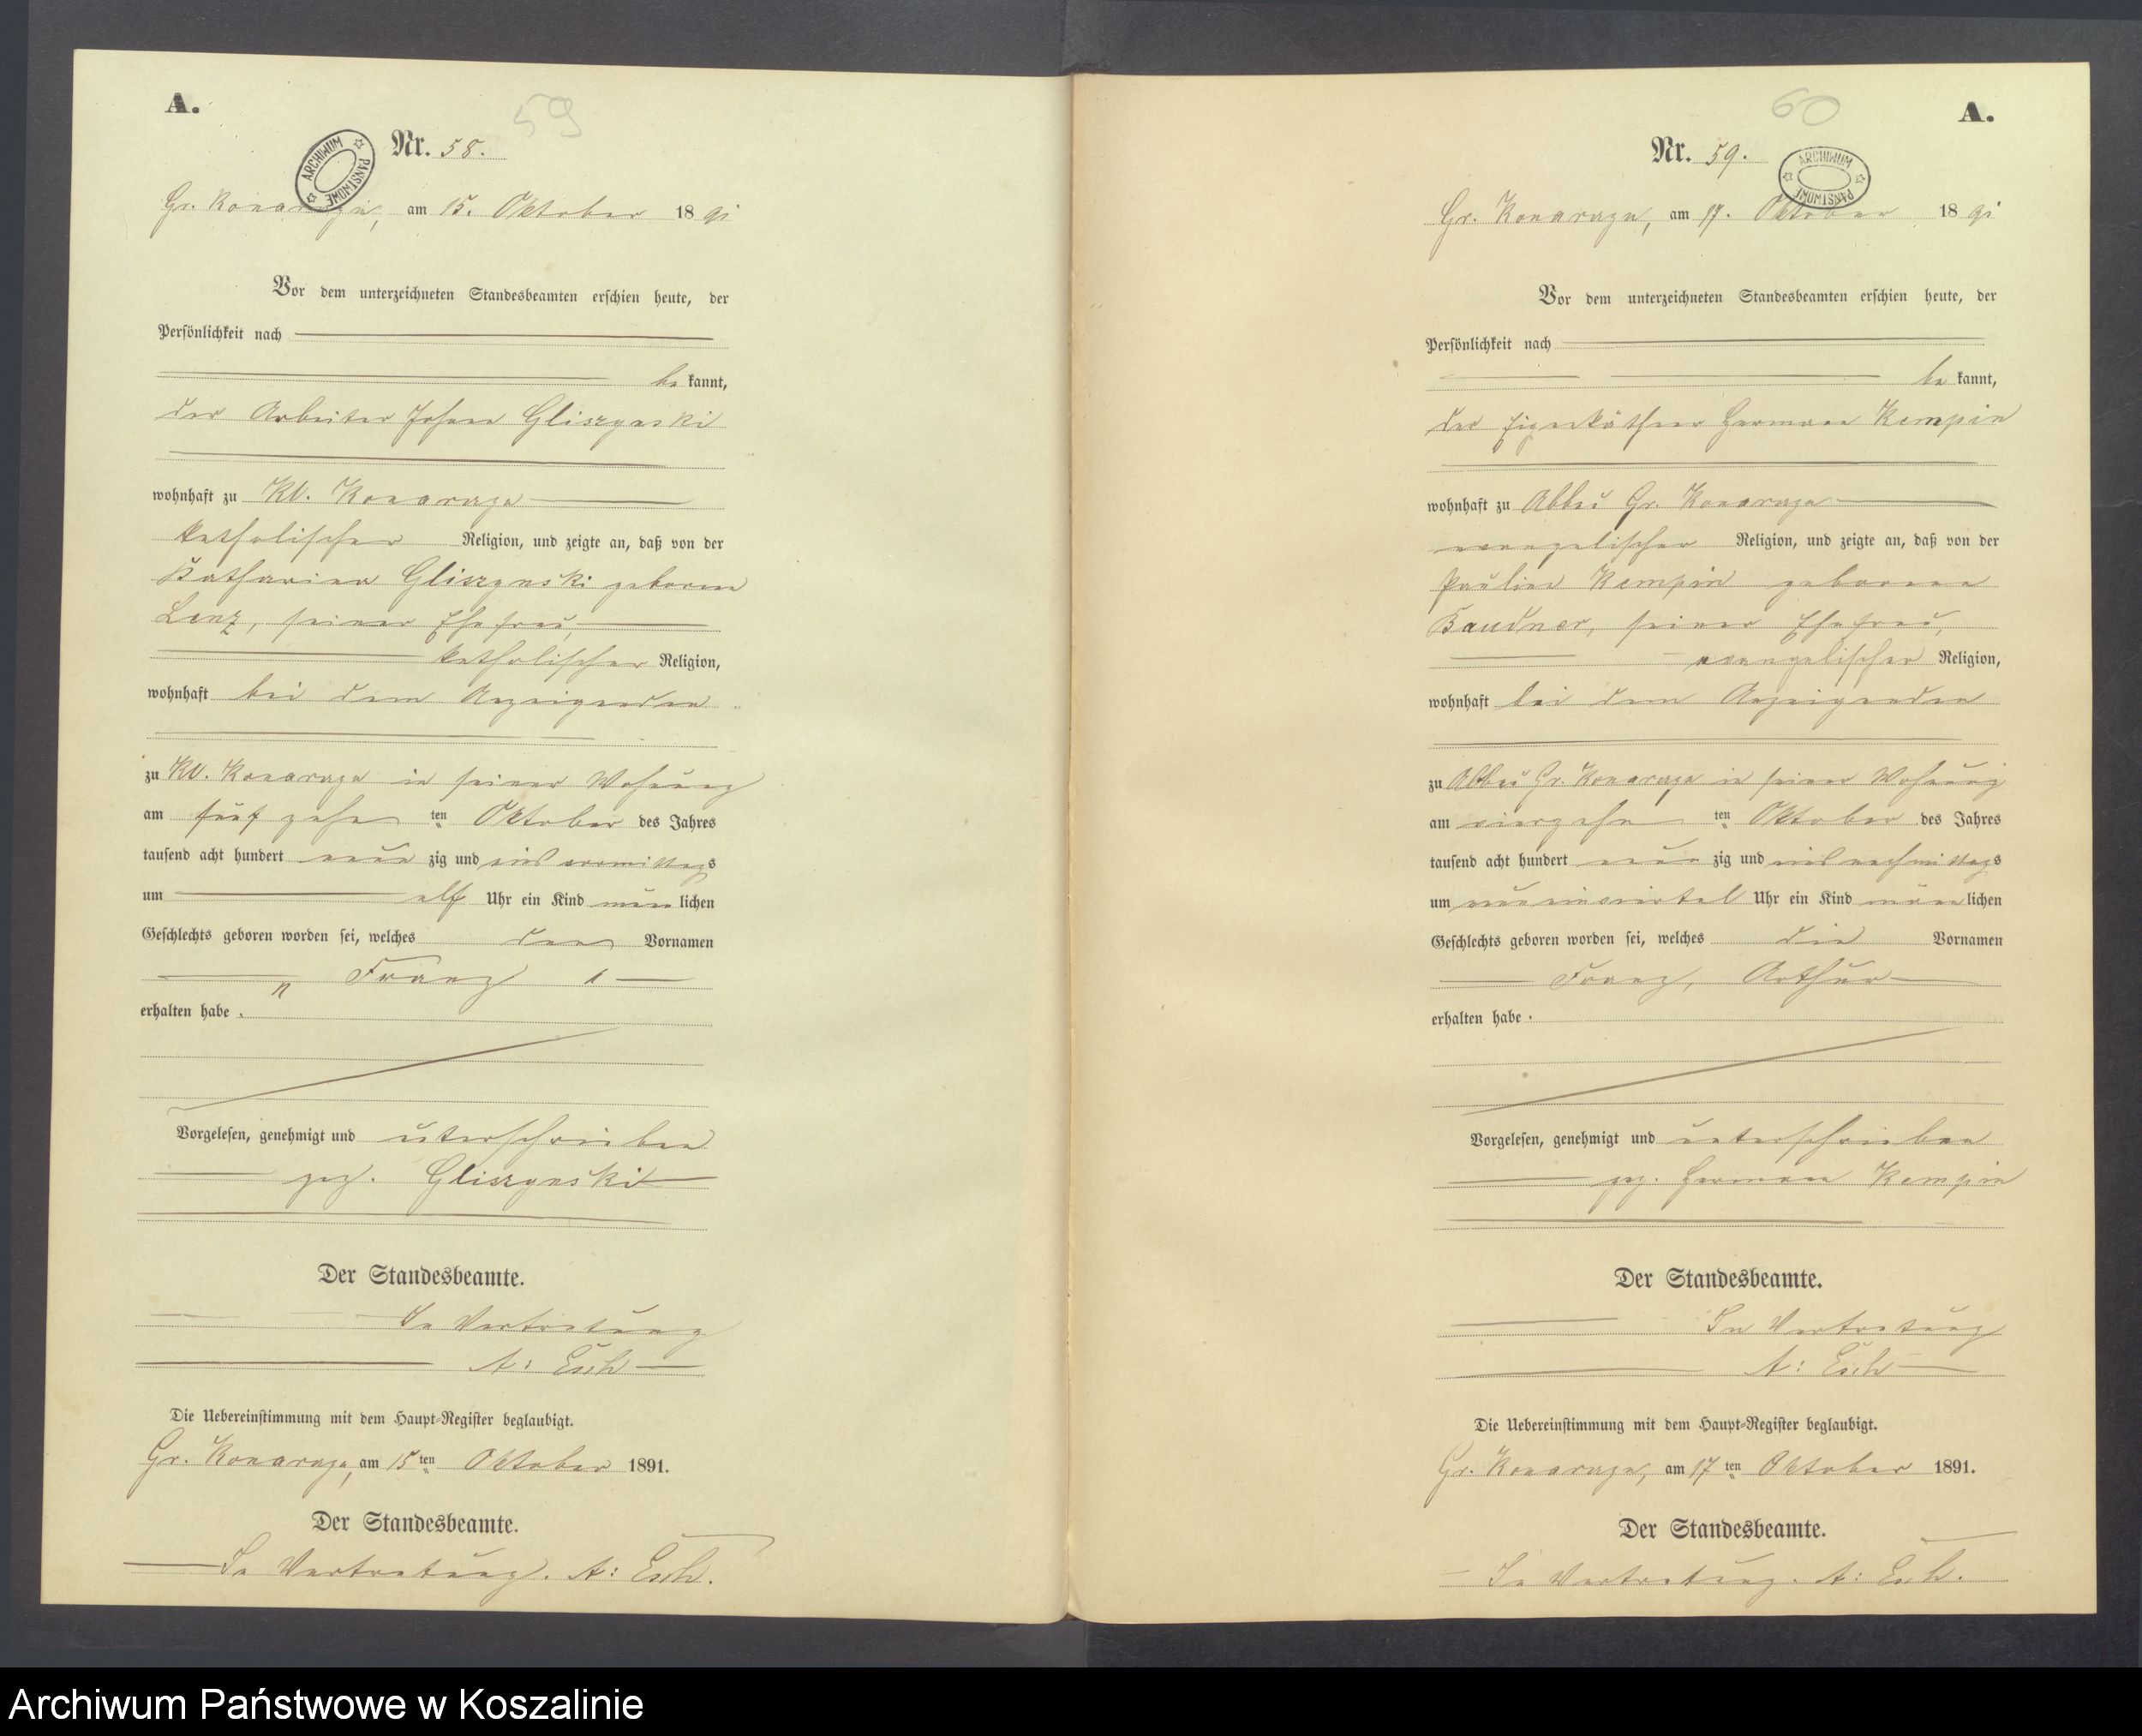 A.
59
Nr. 58.
ARCHIWUM PAŃSTWOWE
Gr. Konarzyn, am 15. Oktober 1891
Vor dem unterzeichneten Standesbeamten erschien heute, der
Persönlichkeit nach
be kannt,
der Arbeiter Johann Gliszynski
wohnhaft zu Kl. Konarzyn
katholischer Religion, und zeigte an, daß von der
Katharina Gliszynski geborene
Lenz, seiner Ehefrau,
katholischer Religion,
wohnhaft bei dem Anzeigenden
zu Kl. Konarzyn in seiner Wohnung
am fünfzehn ten Oktober des Jahres
tausend acht hundert neun zig und eins vormittags
um elf Uhr ein Kind männ lichen
Geschlechts geboren worden sei, welches den Vornamen
„ Franz
erhalten habe.
Vorgelesen, genehmigt und unterschrieben
gez. Gliszynski
Der Standesbeamte.
In Vertretung
A: Esch
Die Uebereinstimmung mit dem Haupt-Register beglaubigt.
Gr. Konarzyn, am 15 ten Oktober 1891.
Der Standesbeamte.
In Vertretung. A: Esch.
60
A.
Nr. 59.
ARCHIWUM PAŃSTWOWE
Gr. Konarzyn, am 17. Oktober 1891
Vor dem unterzeichneten Standesbeamten erschien heute, der
Persönlichkeit nach
be kannt,
der Eigenkäthner Hermann Kempin
wohnhaft zu Abbau Gr. Konarzyn
evangelischer Religion, und zeigte an, daß von der
Pauline Kempin geborene
Baudner, seiner Ehefrau,
evangelischer Religion,
wohnhaft bei dem Anzeigenden
zu Abbau Gr. Konarzyn in seiner Wohnung
am vierzehn ten Oktober des Jahres
tausend acht hundert neun zig und eins nachmittags
um neun einviertel Uhr ein Kind männ lichen
Geschlechts geboren worden sei, welches die Vornamen
Franz, Arthur
erhalten habe.
Vorgelesen, genehmigt und unterschrieben
gez. Hermann Kempin
Der Standesbeamte.
In Vertretung
A: Esch
Die Uebereinstimmung mit dem Haupt-Register beglaubigt.
Gr. Konarzyn, am 17 ten Oktober 1891.
Der Standesbeamte.
In Vertretung. A: Esch.
Archiwum Państwowe w Koszalinie